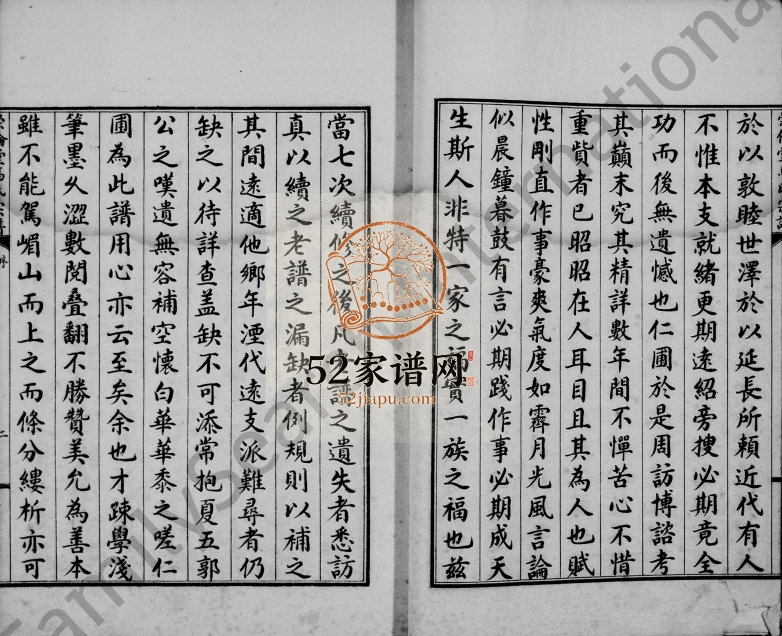 於以敦睦世澤於以延長所賴近代有人
不惟本支就緒更期遠紹旁搜必期竟全
功而後無遺憾也仁圃於是周訪博諮考
其巔末究其精詳數年間不憚苦心不惜
重貲者已昭昭在人耳目且其為人也賦
性剛直作事豪爽氣度如霽月光風言論
似晨鐘暮鼓有言必期踐作事必期成天
生斯人非特一家之福實一族之福也茲
當七次續修之後凡譜之遺失者悉訪
真以續之老譜之漏缺者例規則以補之
其間遠適他鄉年湮代遠支派難尋者仍
缺之以待詳查蓋缺不可添常抱夏五郭
公之嘆遺無容補空懷白華華黍之嗟仁
圃為此譜用心亦云至矣余也才疎學淺
筆墨久澀數閱叠翻不勝贊美允為善本
雖不能駕嵋山而上之而條分縷析亦可
二
52家谱网
52jiapu.com
FamilySearch International